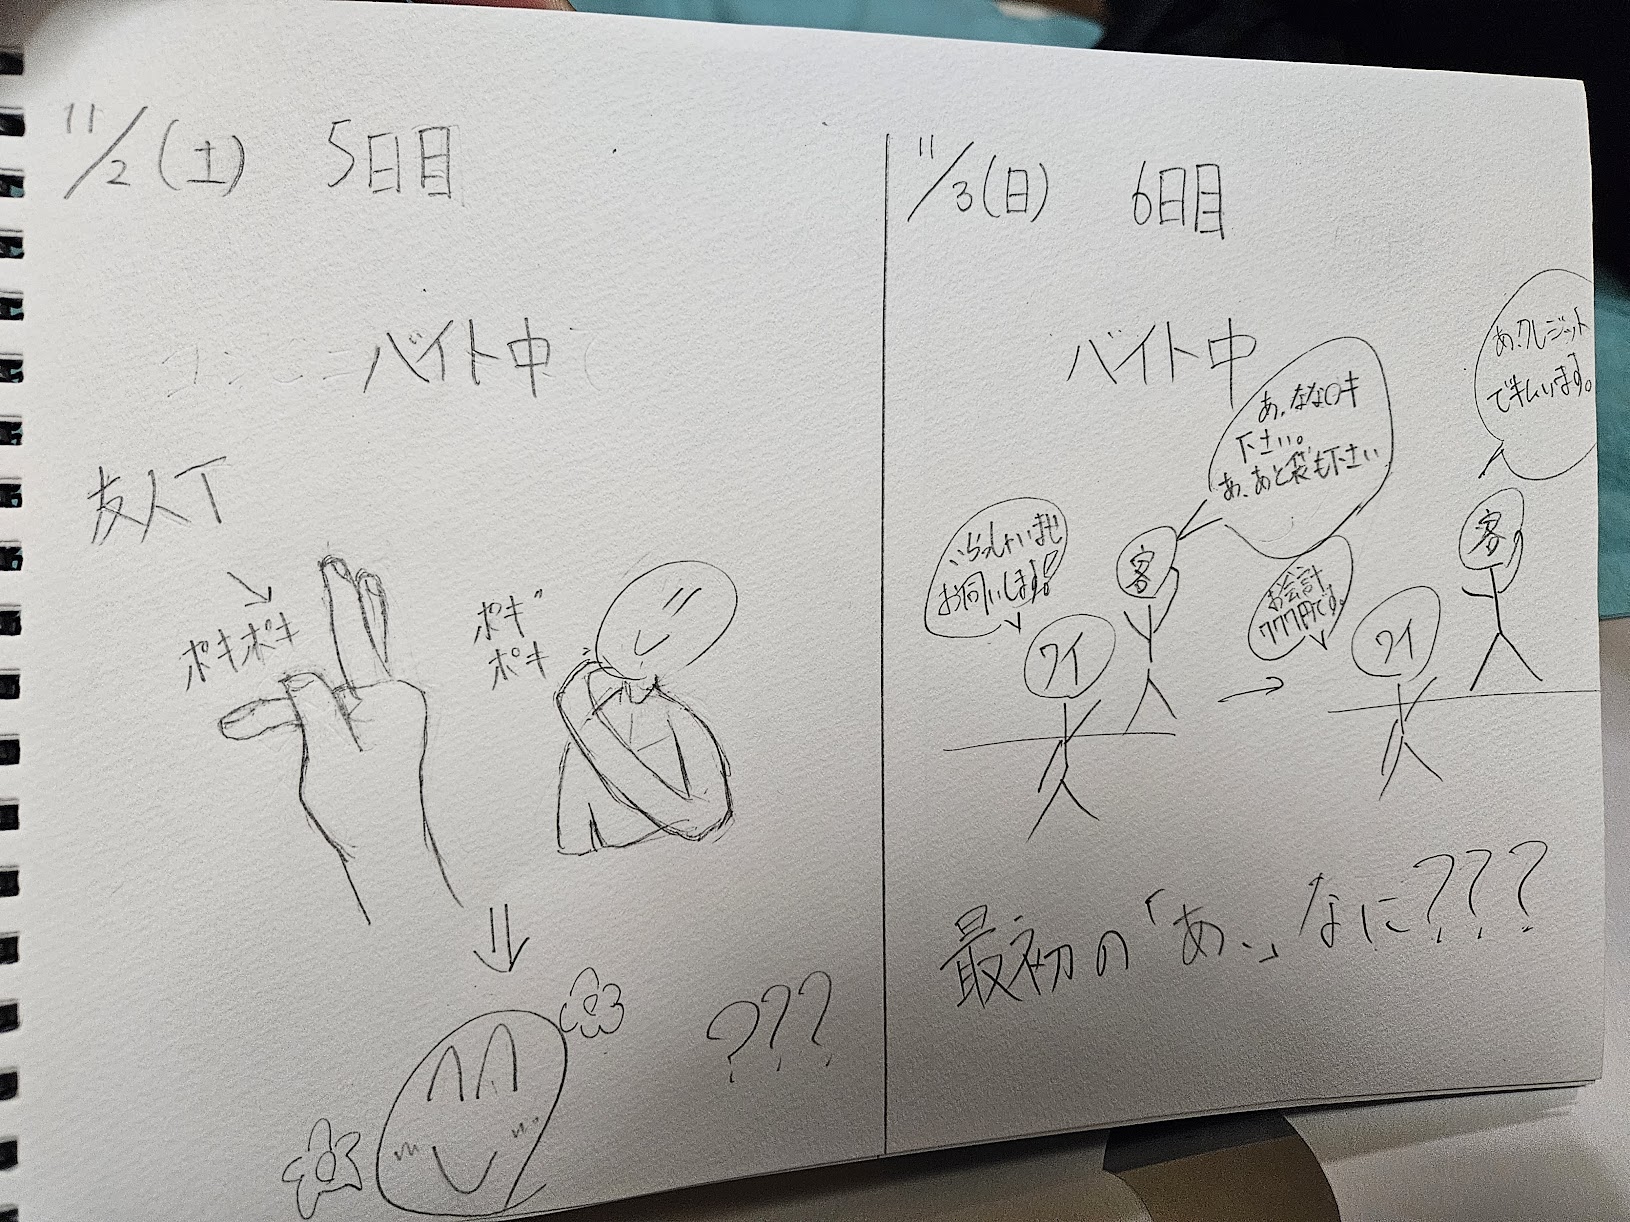 11/2(土) 5日目
バイト中
友人T
ポキポキ
ポキ
ポキ
???
11/3(日) 6日目
バイト中
いらっしゃいませ
お伺いします!
客
あ、ななロキ
下さい。
あ、あと袋も下さい
ワイ
お会計
777円です。
ワイ
客
あ、クレジット
でｷﾑいます。
最初の「あ、」なに???